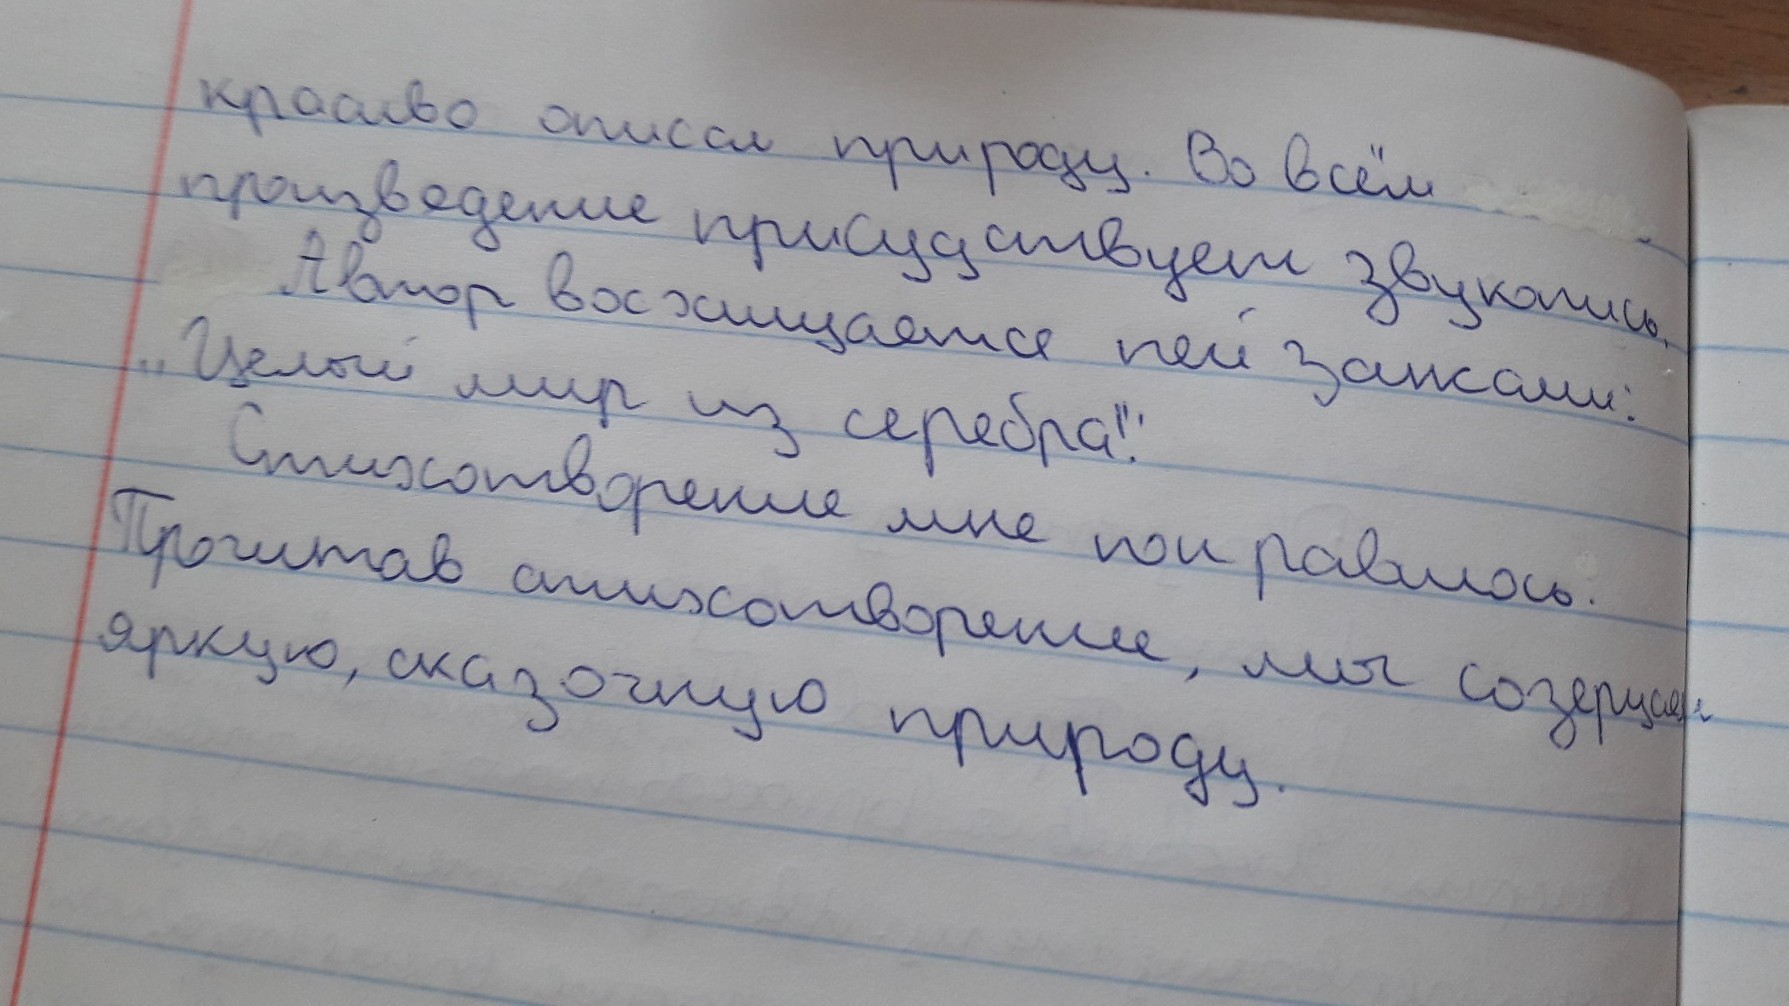 красиво описал природу. Во всём
произведение присудствует звукопись.
Автор восхищается пейзажами:
"Целый мир из серебра!".
Стихотворение мне понравилось.
Прочитав стихотворение, мы созерцаем
яркую, сказочную природу.